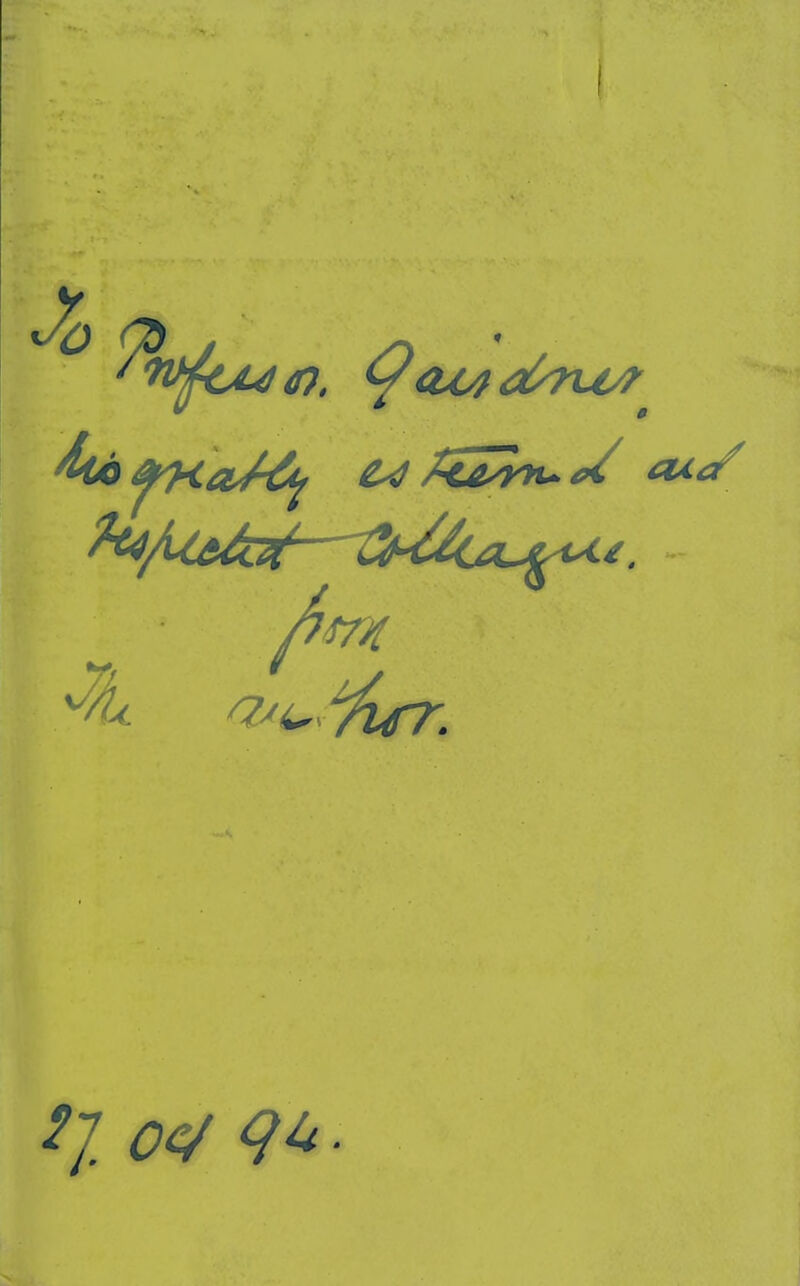 To Profess n. Gairdner
his greatly esteemed and
respected Colleague.
from
The author.
27. Oct 94.